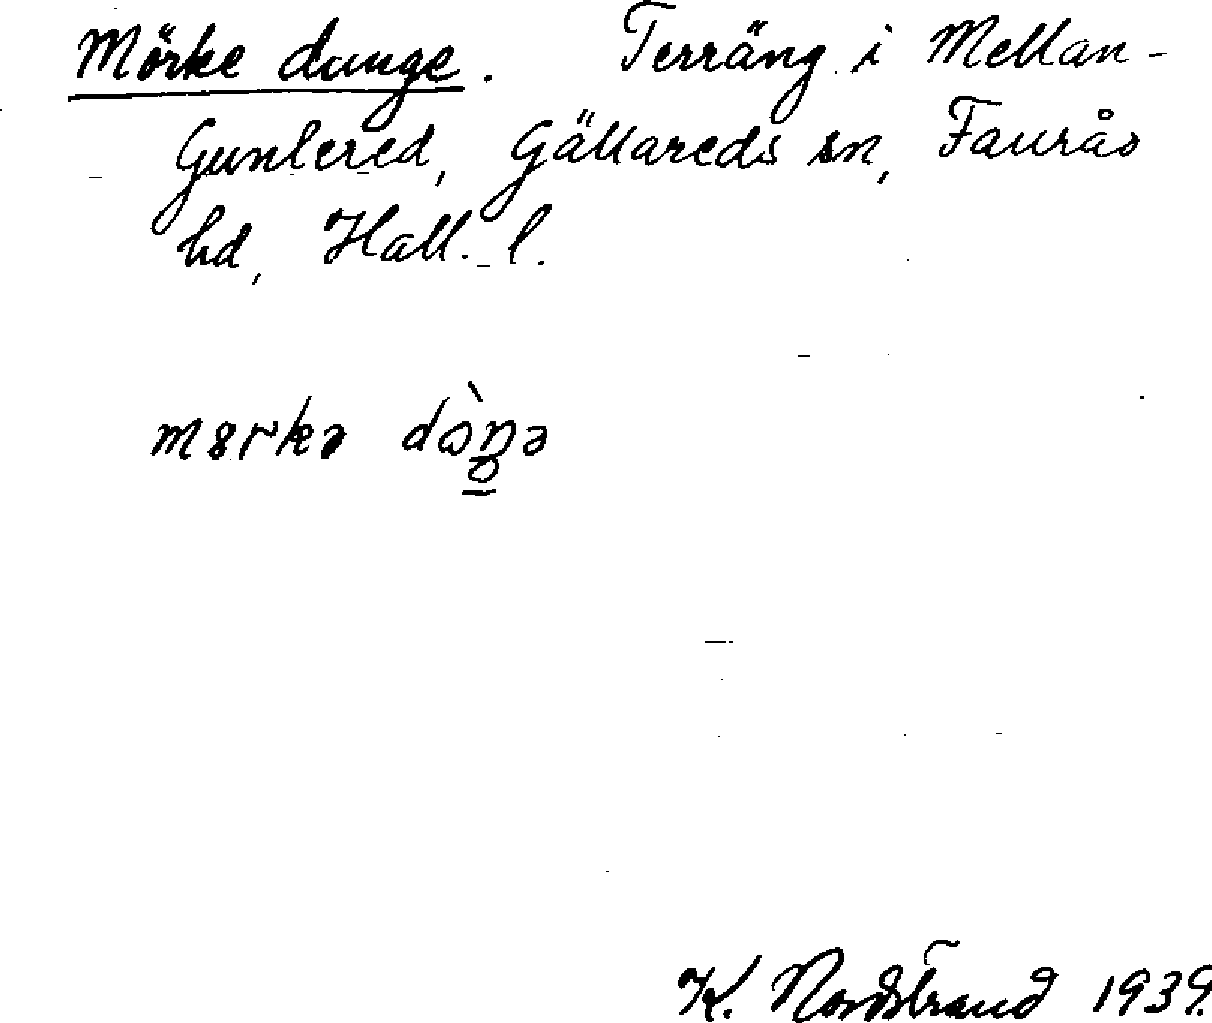 Mörke dunge. Terräng i Mellan-
Gunlered, Gällareds sn, Faurås
hd, Hall. l.
mɵrkə dὼŋə
K. Nordstrand 1939.